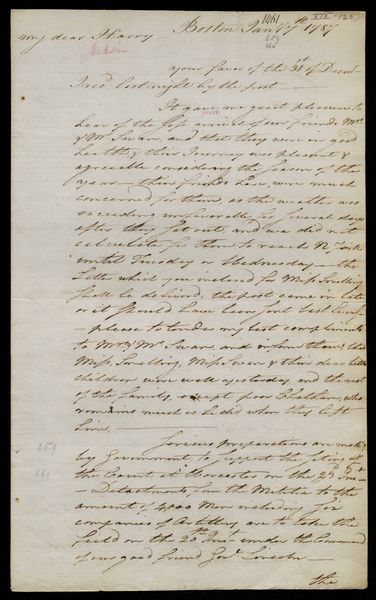 1461
XIX - 125
Boston Jan 7th 1787
659
180
my dear Harry
Jackson
your favor of the 31st of Decemr
I recd last night by the post —
It gave me great pleasure to
hear of the safe arrival of our friends Mrs
& Mr Swan, and that they were in good
health & their Journey was pleasant &
agreeable considering the season of the
year — their friends here, were much
concerned for them, as the weather was
exceeding unfavorable for several days
after they set out, and we did not
calculate for them to reach N York
until Tuesday or Wednesday — the
Letter which you inclosed for Miss Snelling
shall be delivered, the post came in late
or it should have been sent last Eveng
— please to tender my best compliments
to Mrs & Mr Swan, and inform them that
Miss Snelling, Miss Swan & their dear little
children were well yesterday, and the rest
of the family, except poor Chatham, who
remains much as he did when they left
him, —
659
180
Serious preparations are making
by Government, to support the sitting of
the Court at Worcester on the 23d Inst
— Detachments from the Militia to the
amount of 4,000 Men including four
companies of Artillery are to take the
field on the 20th Inst under the Command
of our good friend Genl Lincoln —
The